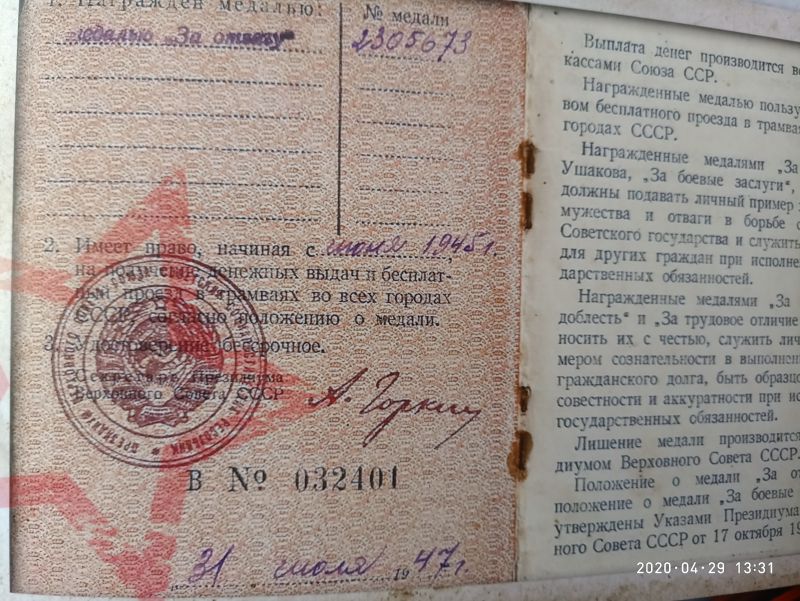 1. Награжден медалью:
№ медали
медалью „За отвагу"
2305673
2. Имеет право, начиная с июня 1945 г.,
на получение денежных выдач и бесплат-
ный проезд в трамваях во всех городах
СССР согласно положению о медали.
3. Удостоверение бессрочное.
Секретарь Президиума
Верховного Совета СССР
А. Горкин
В № 032401
31 июля 1947 г.
Выплата денег производится
кассами Союза ССР.
Награжденные медалью
вом бесплатного проезда в
городах СССР.
Награжденные медалями „За
Ушакова, „За боевые заслуги",
должны подавать личный пример
мужества и отваги в борьбе с
Советского государства и служить
для других граждан при
дарственных обязанностей.
Награжденные медалями „За
доблесть" и „За трудовое отличие
носить их с честью, служить
мером сознательности в
гражданского долга, быть
совестности и аккуратности при
государственных обязанностей.
Лишение медали производится
диумом Верховного Совета СССР.
Положение о медали „За
положение о медали „За боевые
утверждены Указами Президиума
ного Совета СССР от 17 октября
2020·04·29 13:31